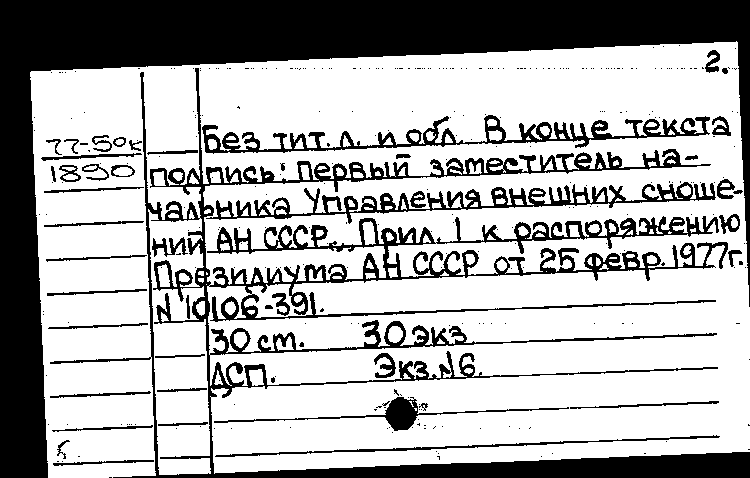 2.
77-50к Без тит. л. и обл. В конце текста
1890 подпись: первый заместитель на-
чальника Управления внешних сноше-
ний АН СССР... Прил. 1 к распоряжению
Президиума АН СССР от 25 февр. 1977г.
N 10106-391.
30 ст. 30 экз.
ДСП. Экз. №6.